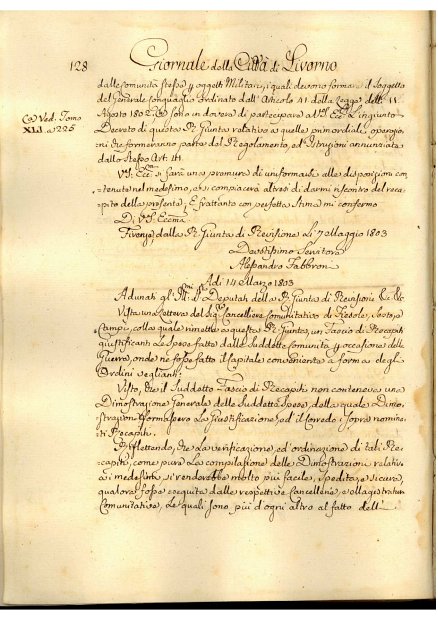 128 Giornale della Città di Livorno
dalle Comunità stesse p oggetti Militari, i quali devono formare il soggetto
del Generale Conguaglio ordinato dall' Articolo 41 della Legge dell' 11
Agosto 1802. Sono in dovere di partecipare a V.S. Ecc. L'ingiunto
Decreto di questa R. Giunta relativo a quelle primordiali operazio
ni che formeranno parte del Regolamento, ed Istruzioni annunziata
dallo stesso Art. 41.
Ved. Tomo
XLI. a 225
VS. Ecc. si farà una premura di uniformarsi alle disposizioni con
tenute nel medesimo, e si compiacerà altresì di darmi riscontro del reca
pito della presente; E frattanto con perfetta stima mi confermo
Di VS. Eccma
Firenze, dalla R. Giunta di Revisione Li 7 Maggio 1803
Devotissimo Servitore
Alessandro Fabbroni
Adi 14 Marzo 1803
Adunati gl' Deputati della R. Giunta di Revisione &c. &c.
Vista una Lettera del Sig. Cancelliere Comunitativo di Fiesole, e Sesto, e
Campi, colla quale rimette a questa R. Giunta, un Fascio di Recapiti
giustificanti le spese fatte dalle suddette Comunità p occasione delle
Guerra, onde ne fosse fatto il Capitale conveniente a forma degl'
Ordini veglianti:
Visto, che il suddetto Fascio di Recapiti non conteneva una
Dimostrazione Generale delle suddette spese, della quale Dimo
strazione formassero la Giustificazione, ed il Corredo i sopra nomina
ti Recapiti.
Riflettendo, che la verificazione, ed ordinazione di tali Re
capiti, come pure la compilazione delle Dimostrazioni relative
ai medesimi si renderebbe molto più facile, spedita, e sicura,
qualora fosse eseguita dalle respettive Cancellerie, e Magistrature
Comunitative, le quali sono più d'ogni altro al fatto dell